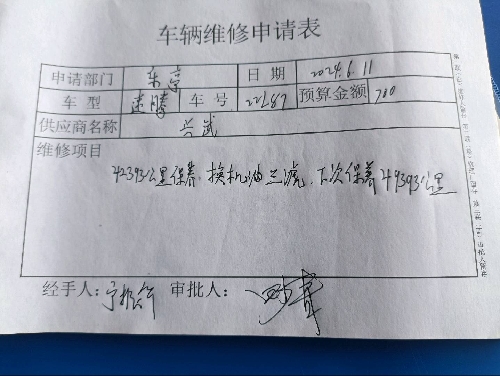 车辆维修申请表
申请部门 东亭 日期 2024.6.11
车型 速腾 车号 22L87 预算金额 700
供应商名称
维修项目
42393公里保养.换机油三滤.下次保养49393公里
经手人: 审批人: